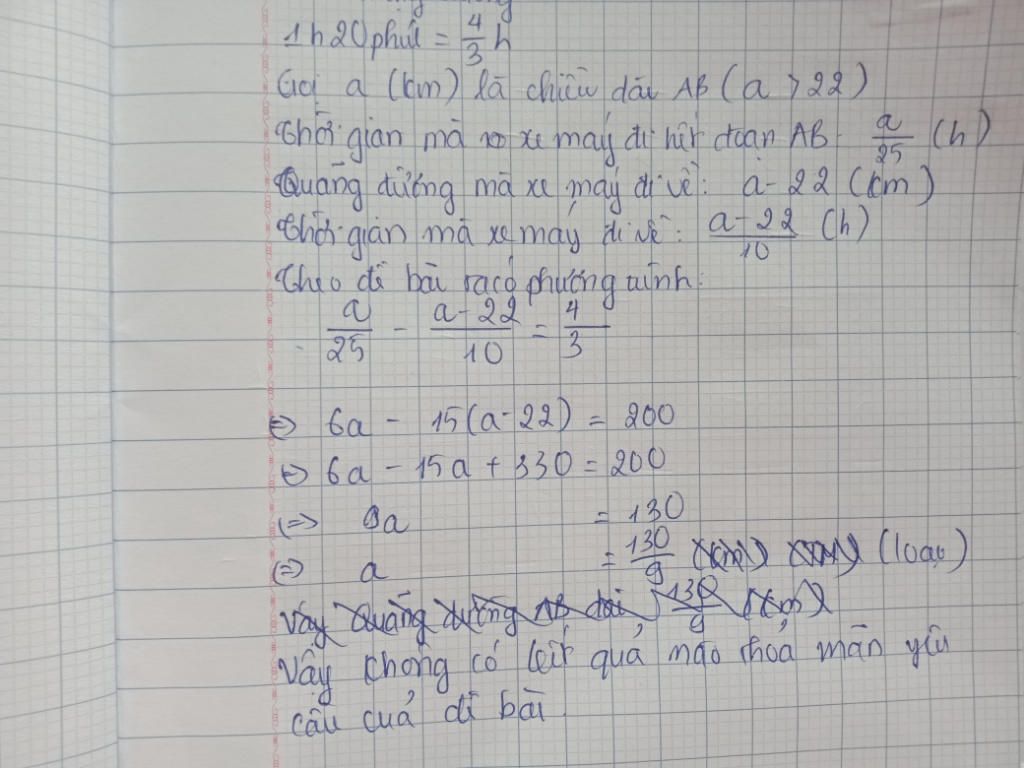 1h20phút = 4/3 h
Gọi a (km) là chiều dài AB (a > 22)
Thời gian mà xe máy đi hết đoạn AB: a/25 (h)
Quãng đường mà xe máy đi về: a - 22 (km)
Thời gian mà xe máy đi về: a-22/10 (h)
Theo đề bài ta có phương trình:
a/25 - a-22/10 = 4/3
⇔ 6a - 15(a-22) = 200
⇔ 6a - 15a + 330 = 200
⇔ 9a = 130
⇔ a = 130/9 (km) (loại)
Vậy quãng đường AB dài 130/9 (km)
Vậy không có kết quả nào thỏa mãn yêu
cầu của đề bài